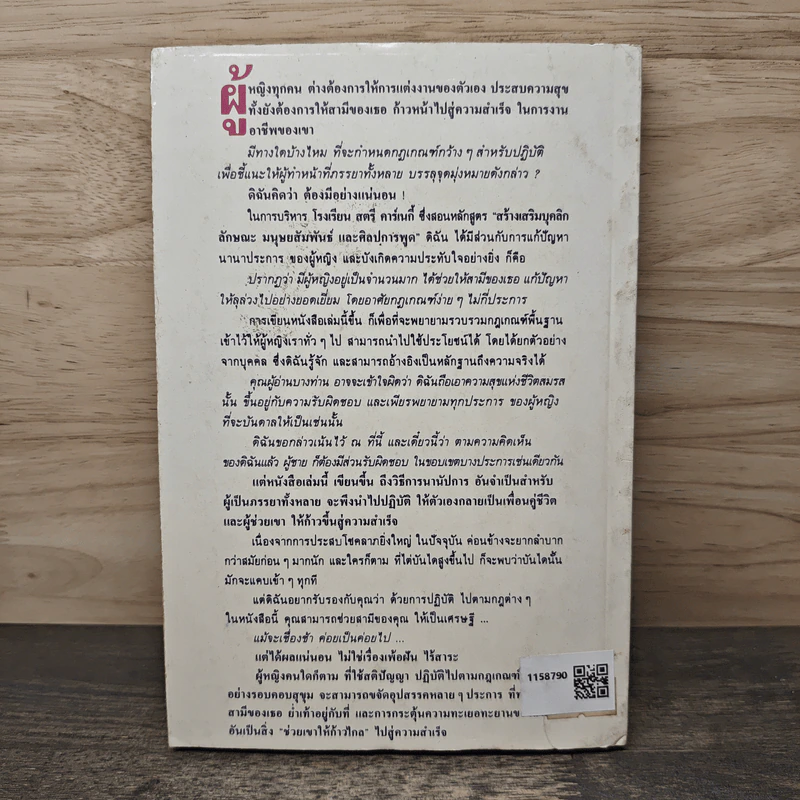 ผู้หญิงทุกคน ต่างต้องการให้การแต่งงานของตัวเอง ประสบความสุข
ทั้งยังต้องการให้สามีของเธอ ก้าวหน้าไปสู่ความสำเร็จ ในการงาน
อาชีพของเขา
มีทางใดบ้างไหม ที่จะกำหนดกฎเกณฑ์กว้าง ๆ สำหรับปฏิบัติ
เพื่อชี้แนะให้ผู้ทำหน้าที่ภรรยาทั้งหลาย บรรลุจุดมุ่งหมายดังกล่าว ?
ดิฉันคิดว่า ต้องมีอย่างแน่นอน !
ในการบริหาร โรงเรียน สตรี คาร์เนกี้ ซึ่งสอนหลักสูตร "สร้างเสริมบุคลิก
ลักษณะ มนุษยสัมพันธ์ และศิลปการพูด" ดิฉัน ได้มีส่วนกับการแก้ปัญหา
นานาประการ ของผู้หญิง และบังเกิดความประทับใจอย่างยิ่ง ก็คือ
ปรากฏว่า มีผู้หญิงอยู่เป็นจำนวนมาก ได้ช่วยให้สามีของเธอ แก้ปัญหา
ให้ลุล่วงไปอย่างยอดเยี่ยม โดยอาศัยกฎเกณฑ์ง่าย ๆ ไม่กี่ประการ
การเขียนหนังสือเล่มนี้ขึ้น ก็เพื่อที่จะพยายามรวบรวมกฎเกณฑ์พื้นฐาน
เข้าไว้ให้ผู้หญิงเราทั่ว ๆ ไป สามารถนำไปใช้ประโยชน์ได้ โดยได้ยกตัวอย่าง
จากบุคคล ซึ่งดิฉันรู้จัก และสามารถอ้างอิงเป็นหลักฐานถึงความจริงได้
คุณผู้อ่านบางท่าน อาจจะเข้าใจผิดว่า ดิฉันถือเอาความสุขแห่งชีวิตสมรส
นั้น ขึ้นอยู่กับความรับผิดชอบ และเพียรพยายามทุกประการ ของผู้หญิง
ที่จะบันดาลให้เป็นเช่นนั้น
ดิฉันขอกล่าวเน้นไว้ ณ ที่นี้ และเดี๋ยวนี้ว่า ตามความคิดเห็น
ของดิฉันแล้ว ผู้ชาย ก็ต้องมีส่วนรับผิดชอบ ในขอบเขตบางประการเช่นเดียวกัน
แต่หนังสือเล่มนี้ เขียนขึ้น ถึงวิธีการนานัปการ อันจำเป็นสำหรับ
ผู้เป็นภรรยาทั้งหลาย จะพึงนำไปปฏิบัติ ให้ตัวเองกลายเป็นเพื่อนคู่ชีวิต
และผู้ช่วยเขา ให้ก้าวขึ้นสู่ความสำเร็จ
เนื่องจากการประสบโชคลาภยิ่งใหญ่ ในปัจจุบัน ค่อนข้างจะยากลำบาก
กว่าสมัยก่อน ๆ มากนัก และใครก็ตาม ที่ไต่บันไดสูงขึ้นไป ก็จะพบว่าบันไดนั้น
มักจะแคบเข้า ๆ ทุกที
แต่ดิฉันอยากรับรองกับคุณว่า ด้วยการปฏิบัติ ไปตามกฎต่าง ๆ
ในหนังสือนี้ คุณสามารถช่วยสามีของคุณ ให้เป็นเศรษฐี ...
แม้จะเชื่องช้า ค่อยเป็นค่อยไป ...
แต่ได้ผลแน่นอน ไม่ใช่เรื่องเพ้อฝัน ไร้สาระ
ผู้หญิงคนใดก็ตาม ที่ใช้สติปัญญา ปฏิบัติไปตามกฎเกณฑ์
อย่างรอบคอบสุขุม จะสามารถขจัดอุปสรรคหลาย ๆ ประการ
สามีของเธอ ย่ำเท้าอยู่กับที่ และการกระตุ้นความทะเยอทะยาน
อันเป็นสิ่ง "ช่วยเขาให้ก้าวไกล" ไปสู่ความสำเร็จ
1158790